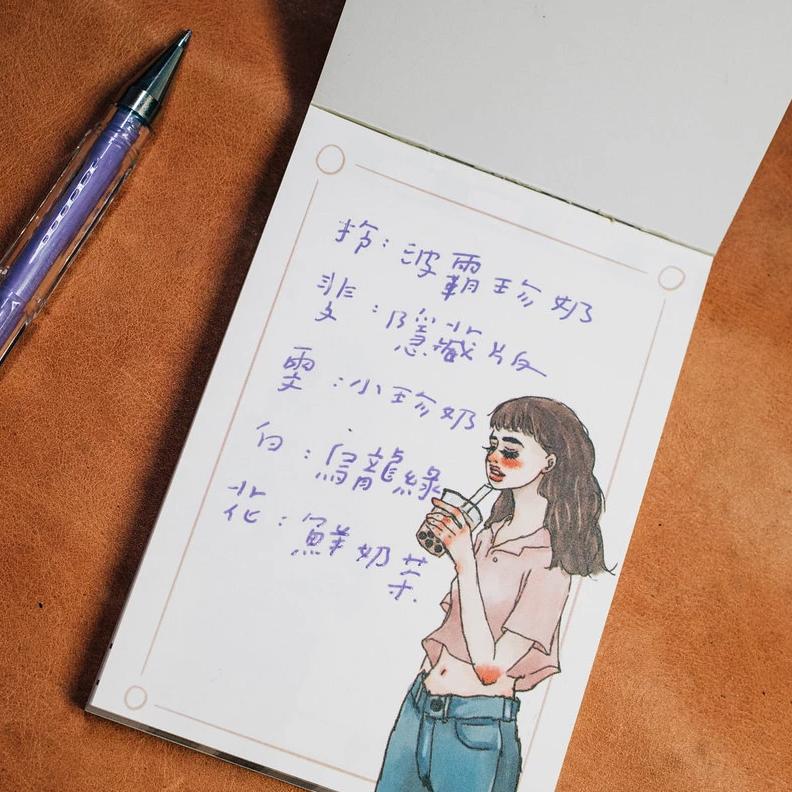 玲：波霸珍奶
斐：隱藏版
雯：小珍奶
白：烏龍綠
花：鮮奶茶